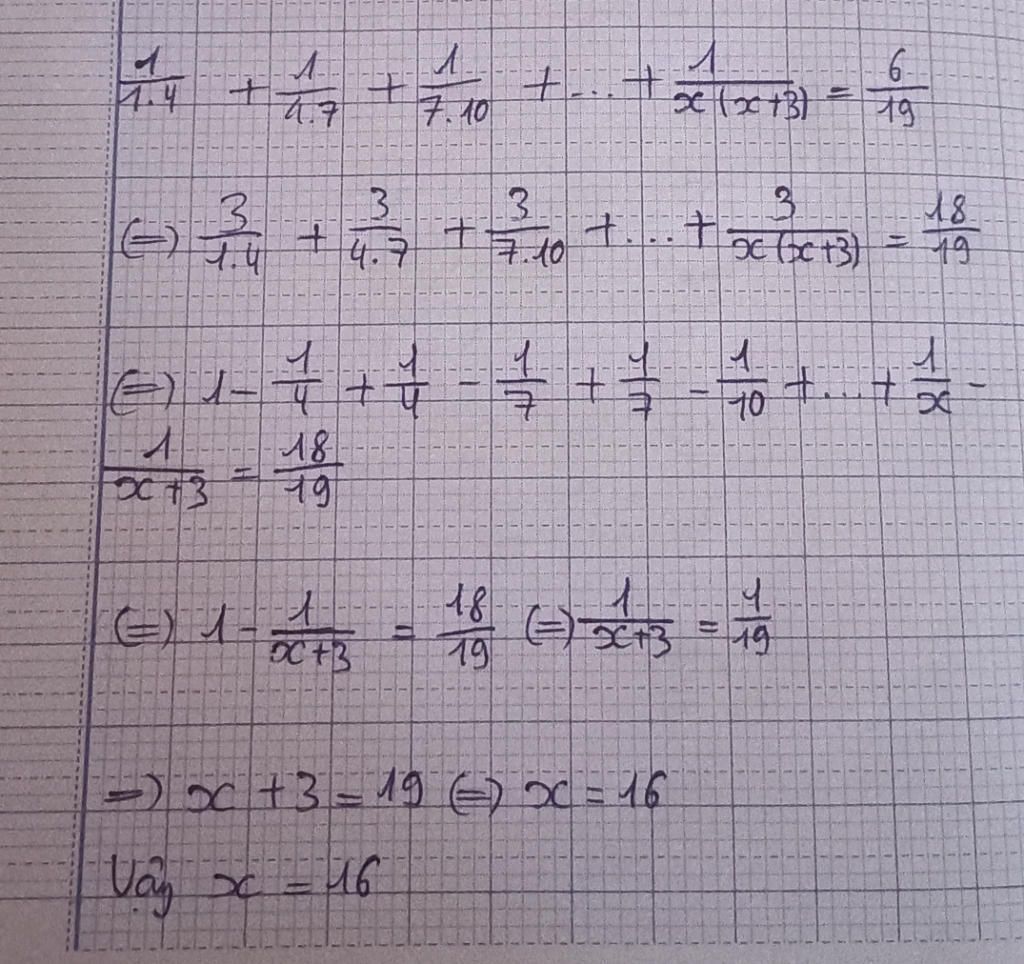 1/1.4 + 1/4.7 + 1/7.10 + ... + 1/x(x+3) = 6/19
(=) 3/1.4 + 3/4.7 + 3/7.10 + ... + 3/x(x+3) = 18/19
(=) 1 - 1/4 + 1/4 - 1/7 + 1/7 - 1/10 + ... + 1/x -
1/x+3 = 18/19
(=) 1 - 1/x+3 = 18/19 (=) 1/x+3 = 1/19
=) x + 3 = 19 (=) x = 16
Vậy x = 16